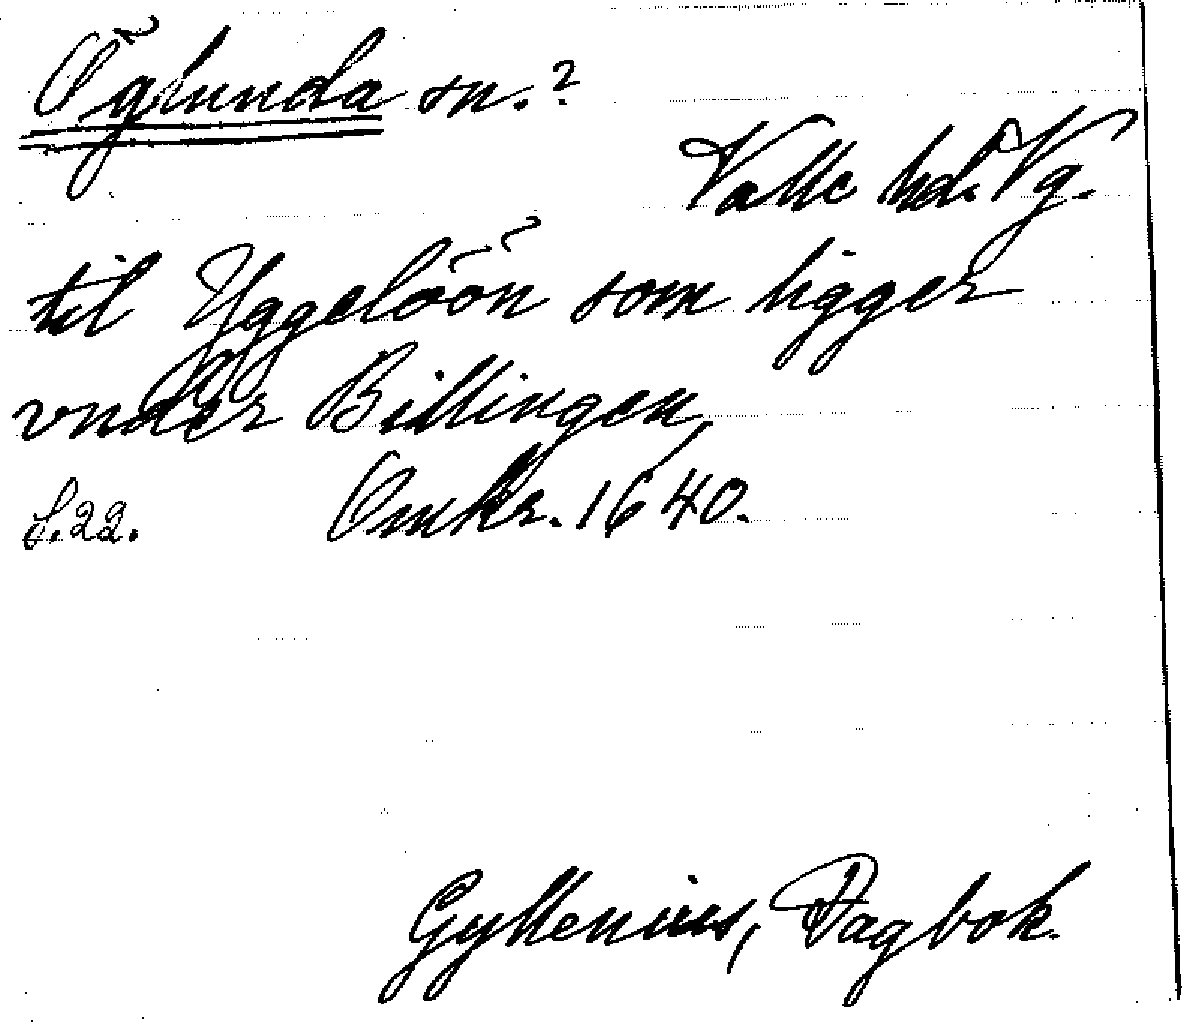 Öglunda sn.?
Valle hd. Vg.
til Yggelöön som ligger
vnder Billingen,
S.22. Omkr. 1640.
Gyllenius, Dagbok.